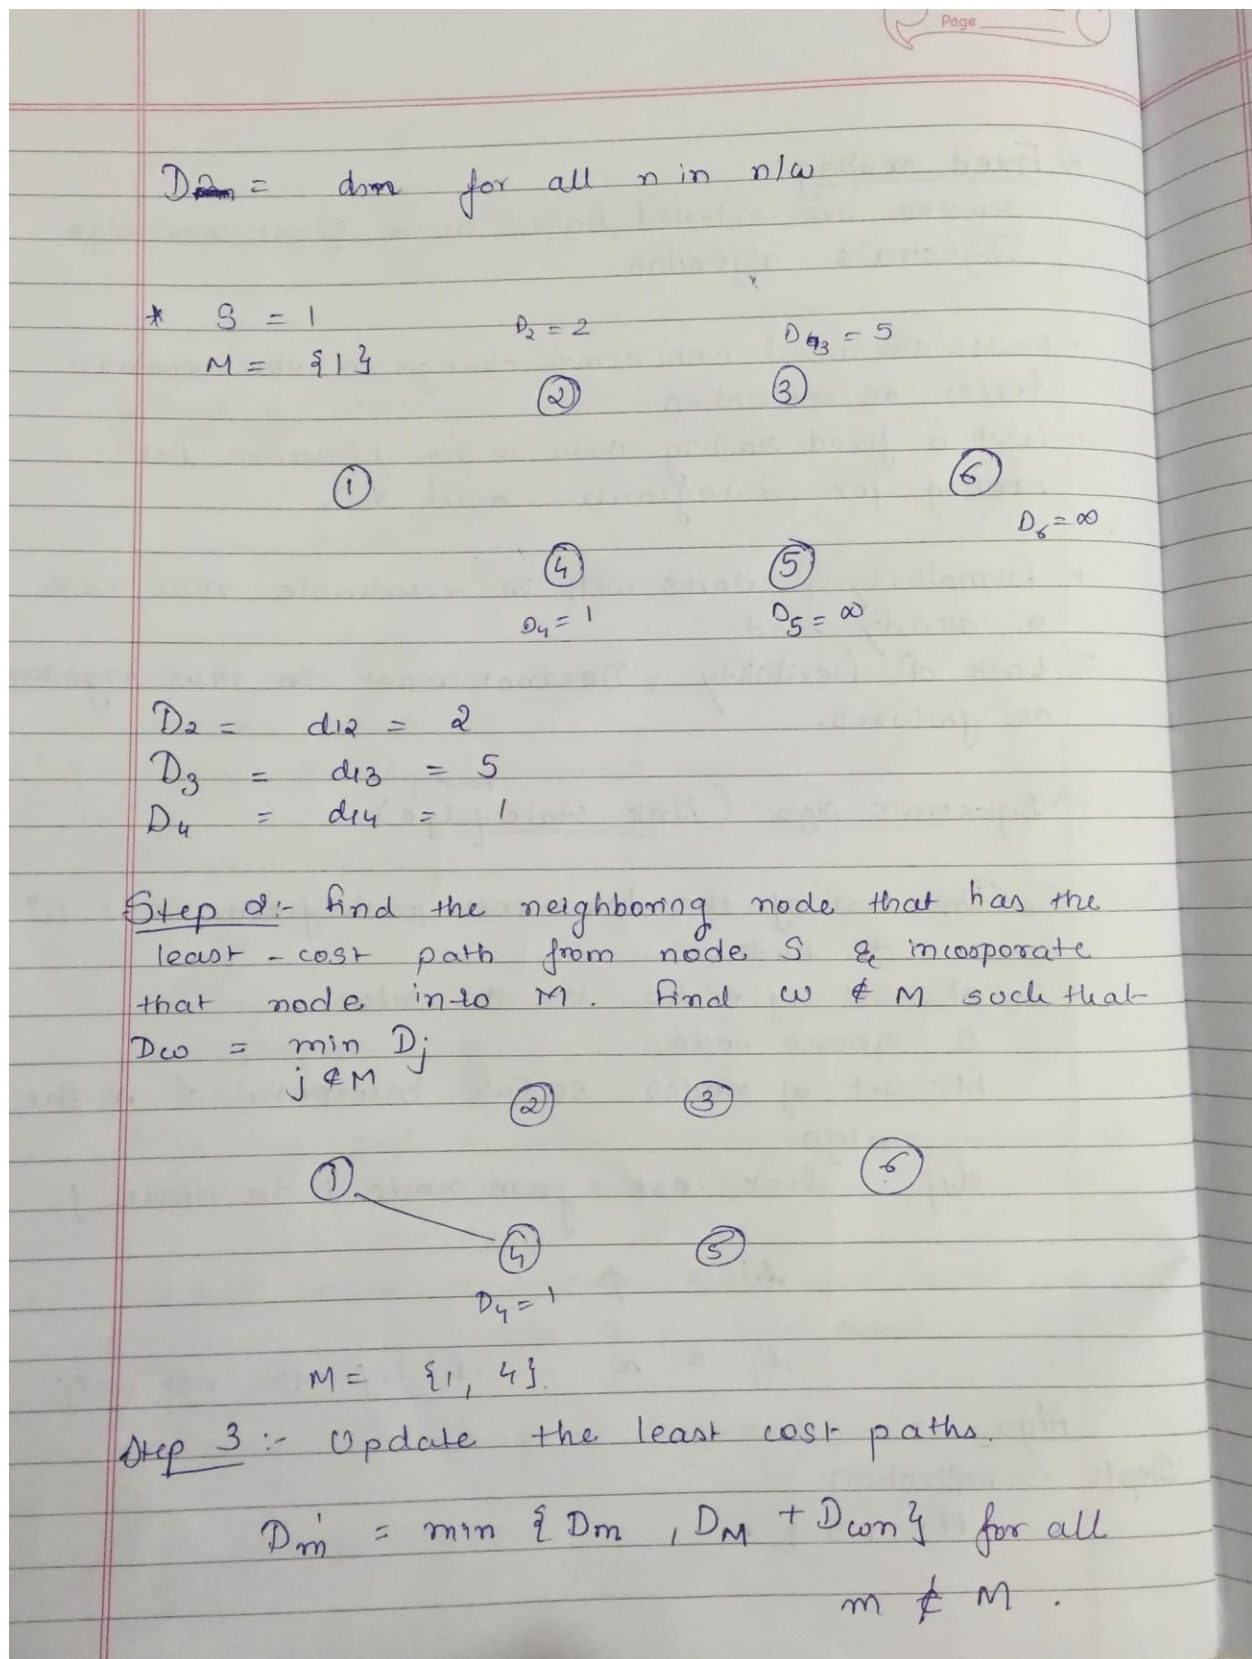 Page
D = dsn for all n in n/w
* S = 1
M = {1}
D2 = 2
D3 = 5
2
3
1
6
D6 = ∞
4
5
D4 = 1
D5 = ∞
D2 = d12 = 2
D3 = d13 = 5
D4 = d14 = 1
Step 2:- find the neighboring node that has the
least - cost path from node S & incorporate
that node into M. Find w ∉ M such that
Dw = min Dj
j ∉ M
2
3
1
6
4
5
D4 = 1
M = {1, 4}.
Step 3 :- Update the least cost paths.
Dm' = min { Dm , DM + Dwn} for all
m ∉ M .